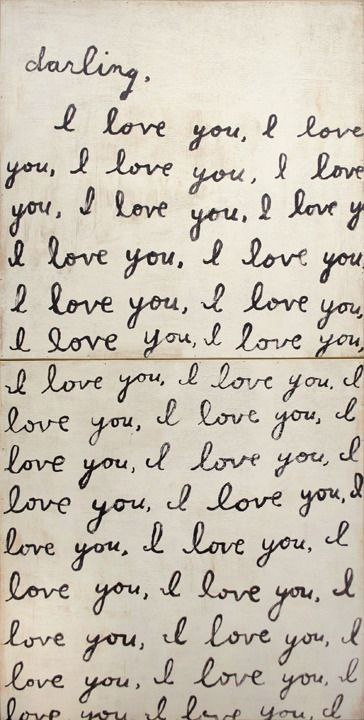 darling,
I love you, I love
you, I love you, I love
you, I love you, I love y
I love you, I love you,
I love you, I love you,
I love you, I love you,
I love you, I love you, I
love you, I love you, I
love you, I love you, I
love you, I love you, I
love you, I love you, I
love you, I love you, I
love you, I love you, I
love you, I love you, I
love you I love you, I